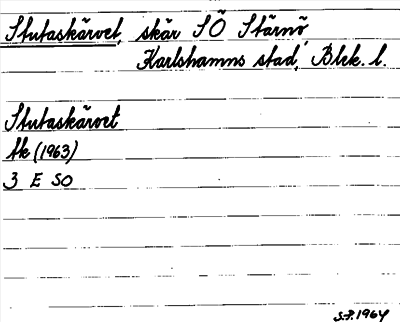 Stutaskärvet, skär SÖ Stärnö,
Karlshamns stad, Blek. l.
Stutaskärvet
Ak (1963)
3 E SO
S.F. 1964